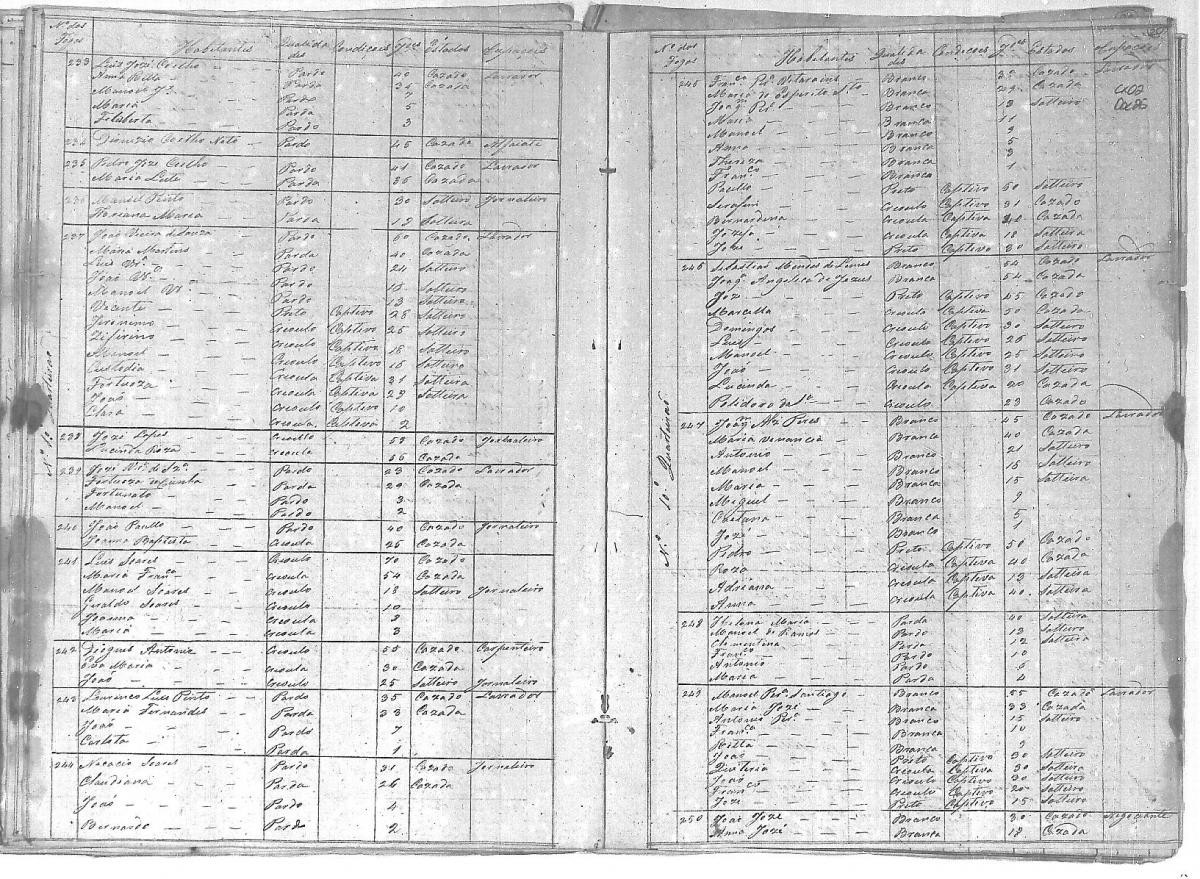 Nº dos Fogos Habitantes Qualidades Condicoes Ides Estados Occupacoes
233 Luis Jozé Coelho Pardo 40 Cazado Lavrador
Anna Bella Parda 35 Cazada
Manoel Pardo 7
Maria Parda 5
Feliberta Pardo 3
234 Dionizio Coelho Neto Pardo 45 Cazado Alfaiate
235 Pedro Joze Coelho Pardo 41 Cazado Lavrador
Maria Leite Parda 36 Cazada
236 Manoel Pinto Pardo 30 Solteiro Jornaleiro
Floriana Maria Parda 19 Solteira
237 João Vieira de Souza Pardo 60 Cazado Lavrador
Maria Martins Parda 40 Cazada
Luis Vrª Pardo 24 Solteiro
João Vrª Pardo Solteiro
Manoel Vrª Pardo 13 Solteiro
Vicente Preto Captivo 28 Solteiro
Jeronimo Creoulo Captivo 25 Solteiro
Ziferino Creoulo Captivo 18 Solteiro
Manoel Creoulo Captivo 16 Solteiro
Custodia Creoula Captiva 31 Solteira
Fortuoza Creoula Captiva 29 Solteira
João Creoulo Captivo 10
Clara Creoula Captiva 2
Nº 10 Quarteirão
238 Jozé Lopes Creoullo 53 Cazado Jornaleiro
Lucinda Roza Creoula 56 Cazada
239 Joze Vrª de Szª Pardo 23 Cazado Lavrador
Fortuoza da Cunha Parda 20 Cazada
Fortunato Pardo 3
Manoel Pardo 2
240 João Paullo Pardo 40 Cazado Jornaleiro
Joanna Baptista Creoula 25 Cazada
241 Luis Soares Creoulo 70 Cazado
Maria Francª Creoula 54 Cazada
Manoel Soares Creoulo 18 Solteiro Jornaleiro
Geraldo Soares Creoulo 10
Joanna Creoula
Maria Creoula 3
242 Diogues Antonio Creoulo 55 Cazado Carpinteiro
Eva Maria Creoula 30 Cazada
João Creoulo 25 Solteiro Jornaleiro
243 Lourenço Luis Pinto Pardo 35 Cazado Lavrador
Maria Fernandes Parda 33 Cazada
João Pardo 7
Carlota Parda 1
244 Nacacio Soares Pardo 31 Cazado Jornaleiro
Claudiana Parda 26 Cazada
João Pardo 4
Bernardo Pardo 2
Nº dos Fogos Habitantes Qualidades Condicoes Ides Estados Occupacoes
245 Francº Perª Branco 32 Cazado Lavrador
Maria do Espirito Sto Branca 29 Cazada
Joaqm Perª Branco 13 Solteiro
Maria Branca 11
Manoel Branco 9
Anna Branca 5
Thereza Branca 3
Francª Branca 1
Paullo Preto Captivo 50 Solteiro
Serafim Creoulo Captivo 31 Cazado
Bernardina Creoula Captiva 20 Cazada
Jozefa Creoula Captiva 18 Solteira
Joze Preto Captivo 30 Solteiro
246 Sebastião Mendes de Lemes Branco 54 Cazado Lavrador
Joaqª Angelica de Jezus Branca 54 Cazada
Joze Preto Captivo 45 Cazado
Marcella Creoula Captiva 50 Cazada
Domingos Creoulo Captivo 30 Solteiro
Luis Creoulo Captivo 26 Solteiro
Manoel Creoulo Captivo 25 Solteiro
João Creoulo Captivo 31 Cazado
Lucinda Creoula Captiva 20 Cazada
Polidoro da Sª Creoulo 23 Cazado
Nº 10 Quarteirão
247 Joaqm Alz Pires Branco 45 Cazado Lavrador
Maria Venancia Branca 40 Cazada
Antonio Branco 21 Solteiro
Manoel Branco 16 Solteiro
Maria Branca 15 Solteira
Miguel Branco 9
Caetana Branca 5
Joze Branco 1
Pedro Preto Captivo 50 Cazado
Roza Creoula Captiva 40 Cazada
Adriana Creoula Captiva 13 Solteira
Anna Creoula Captiva 40 Solteira
248 Helena Maria Parda 40 Solteira
Manoel de Ramos Pardo 13 Solteiro
Clementina Parda 12 Solteira
Francº Pardo 10
Antonio Pardo 6
Maria Parda 4
249 Manoel Perª Santiago Branco 55 Cazado Lavrador
Maria Jozé Branca 33 Cazada
Antonio Perª Branco 15 Solteiro
Francª Branca 10
Ritta Branca 9
João Preto Captivo 30 Solteiro
Quiteria Creoula Captiva 30 Solteira
João Creoulo Captivo 30 Solteiro
Francº Creoulo Captivo 20 Solteiro
Joze Preto Captivo 15 Solteiro
250 João Jozé Branco 30 Cazado Negociante
Anna Jozé Branca 18 Cazada